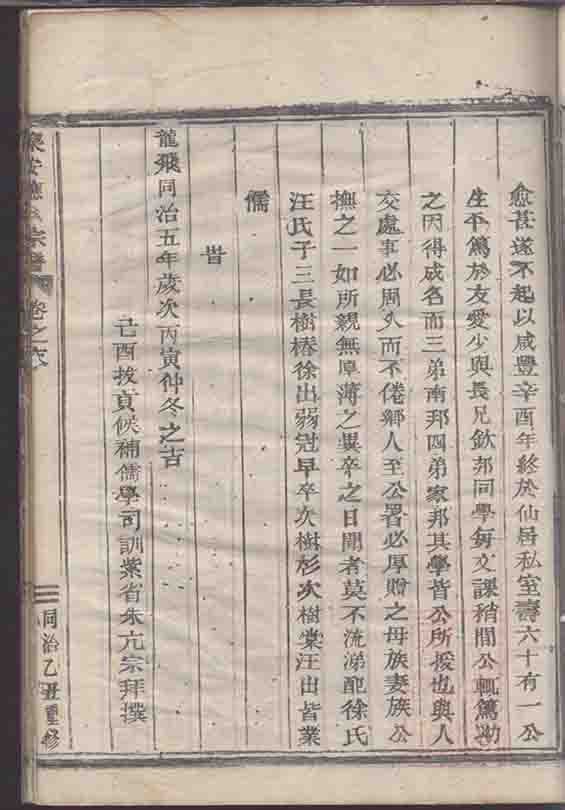 愈甚遂不起以咸豐辛酉年終於仙居私室壽六十有一公
生平篤於友愛少與長兄欽邦同學每文課稍間公輒篤勸
之因得成名而三弟南邦四弟家邦其學皆公所援也與人
交處事必周久而不倦鄉人至公署必厚贈之母族妻族公
撫之一如所親無厚薄之異卒之日聞者莫不流涕配徐氏
汪氏子三長樹椿徐出弱冠早卒次樹杉次樹棠汪出皆業
儒
旹
龍飛同治五年歲次丙寅仲冬之吉
己酉拔貢候補儒學司訓紫省朱亢宗拜撰
宗譜 卷之
同治乙丑重修